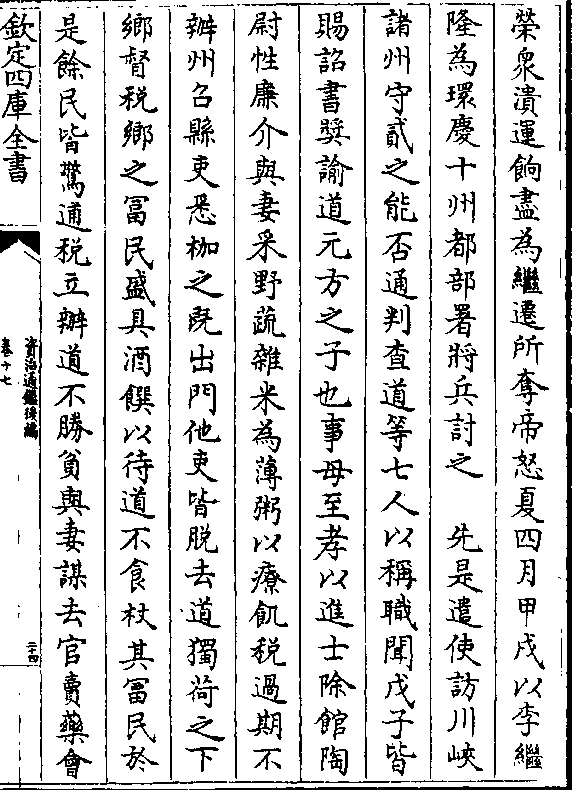 榮衆潰運餉盡為繼遷所奪帝怒夏四月甲戌以李繼
隆為環慶十州都部署將兵討之　先是遣使訪川峽
諸州守貳之能否通判查道等七人以稱職聞戊子皆
賜詔書奬諭道元方之子也事母至孝以進士除館陶
尉性廉介與妻采野蔬雜米為薄粥以療飢税過期不
辦州召縣吏悉枷之既出門他吏皆脱去道獨荷之下
鄉督税鄉之冨民盛具酒饌以待道不食杖其冨民於
是餘民皆驚逋税立辦道不勝貧與妻謀去官賣藥會
欽定四庫全書
資治通鑑後編
卷十七
二十四